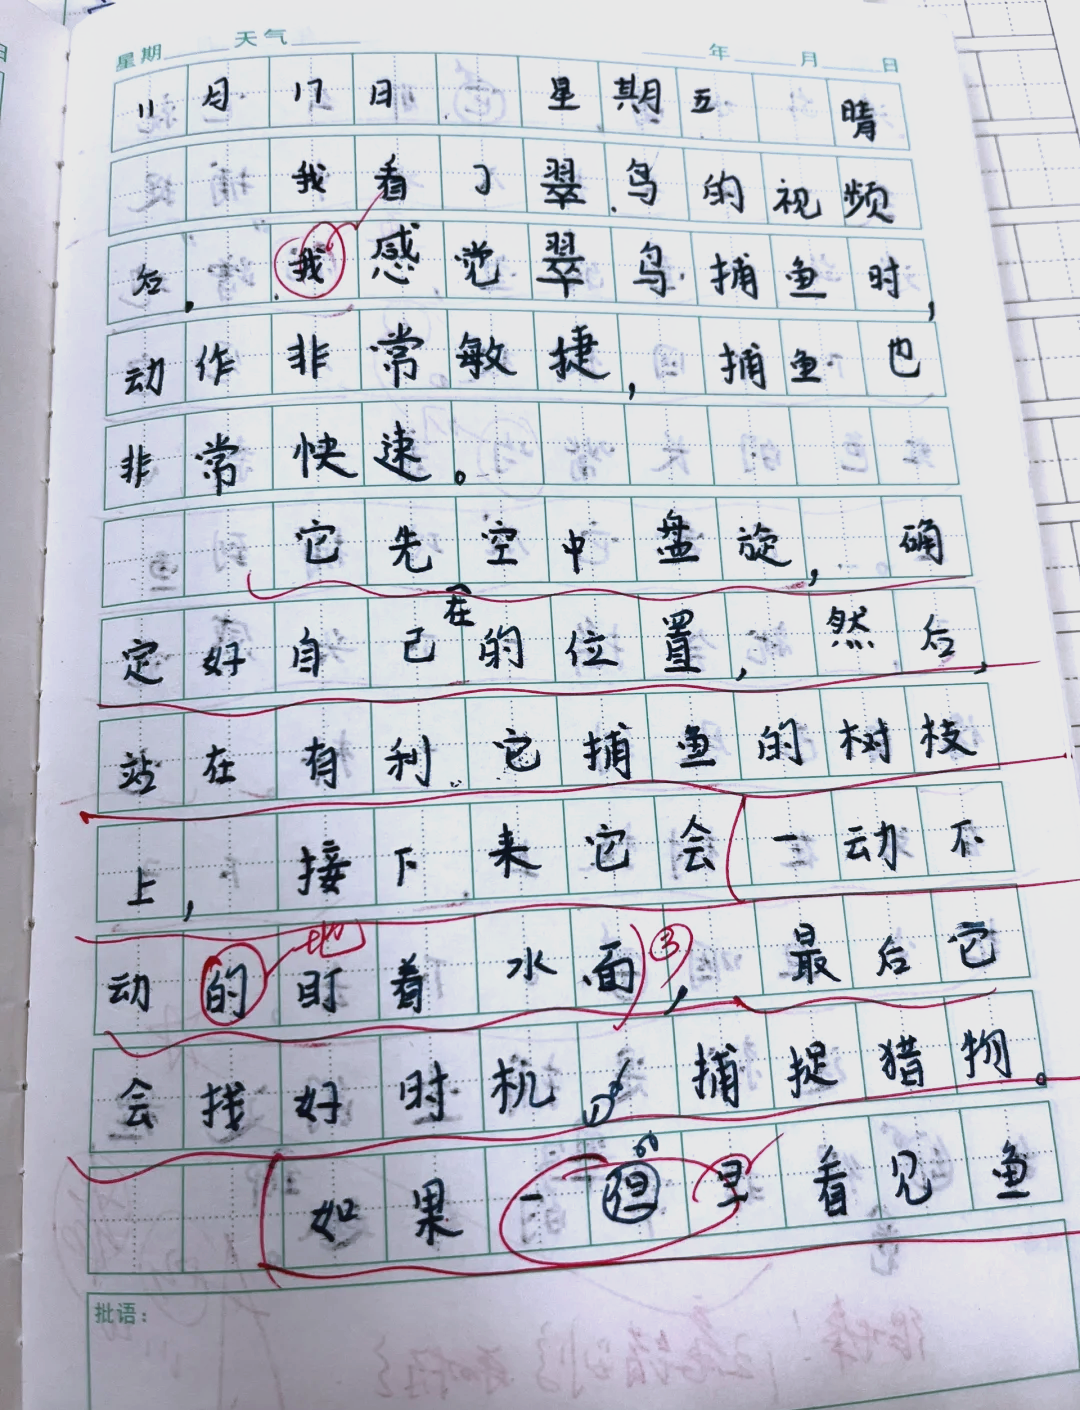 星期 天气 年 月 日
11月17日 星期五 晴
我看了翠鸟的视频
后，我感觉翠鸟捕鱼时，
动作非常敏捷，捕鱼也
非常快速。
它先空中盘旋，确
在
定好自己的位置，然后，
站在有利它捕鱼的树枝
上，接下来它会一动不
地 3
动的盯着水面，最后它
会找好时机，捕捉猎物。
如果一但早看见鱼
批语：